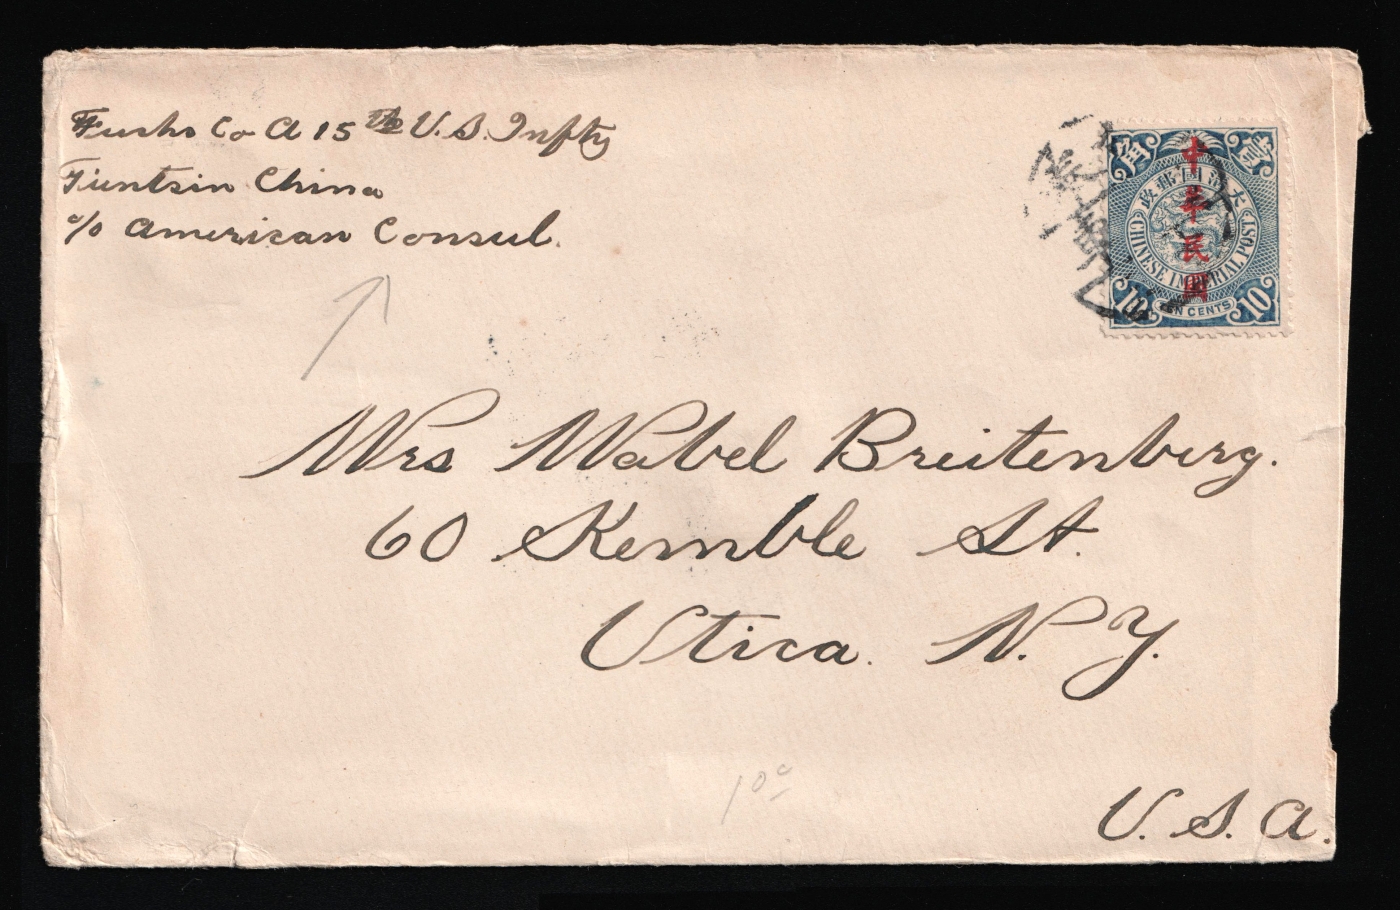 Fuchs Co A 15th U.S. Infty
Tientsin China
c/o American Consul.
角 壹
大清國郵政
中華民國
CHINESE IMPERIAL POST
10 TEN CENTS 10
Mrs Mabel Breitenberg.
60 Kemble St.
Utica. N.Y.
10c
U.S.A.